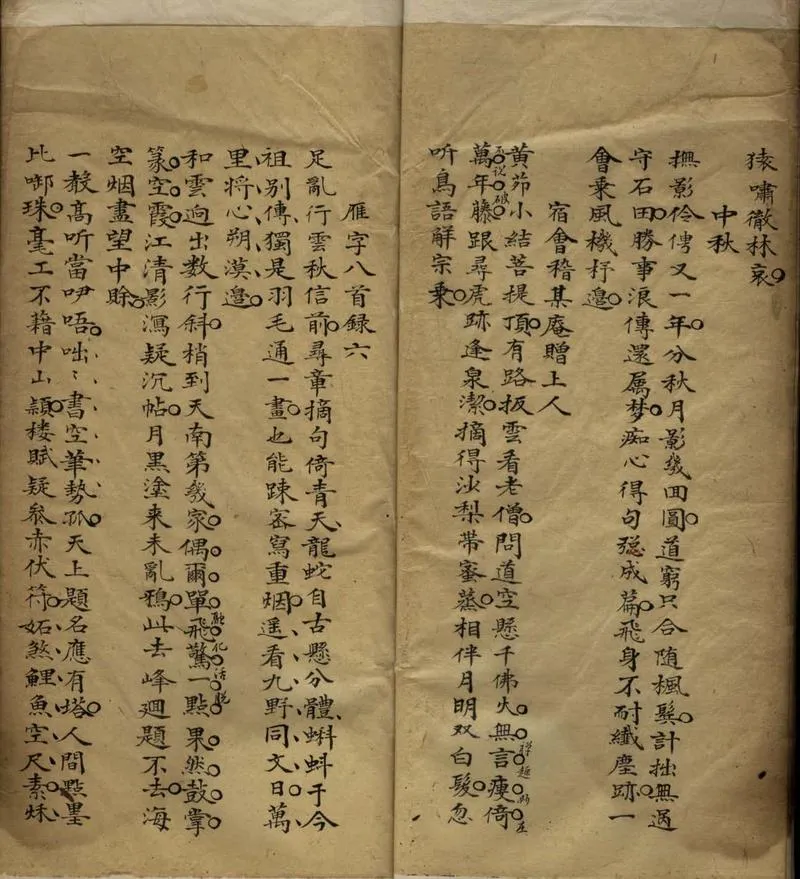 猿嘯徹林哀
中秋
撫影伶俜又一年分秋月影幾回圓道窮只合随楓鬂計拙無過
守石田勝事浪傳還属梦痴心得句稳成篇飛身不耐纖塵跡一
會乗風機杼邊
宿會稽某庵贈上人
黄茆小結菩提頂有路扳雲看老僧問道空懸千佛火無言瘦倚
萬年藤跟尋虎跡逢泉潔摘得沙梨帶蜜蒸相伴月明双白髮忽
听鳥語解宗乗
雁字八首録六
足亂行雲秋信前尋章摘句倚青天龍蛇自古懸分體蝌蚪于今
祖别傳獨是羽毛通一畫也能踈宻寫重烟遥看九野同文日萬
里将心朔漠邊
和雲逈出数行斜梢到天南第幾家偶爾單飛驚一點果然鼓掌
篆空霞江清影瀉疑沉帖月黒塗来未亂鴉此去峰廻題不去海
空烟盡望中賖
一教髙听當咿唔咄〻書空筆勢孤天上題名應有塔人間點墨
比啷珠毫工不藉中山穎楼賦疑叅赤伏符妬煞鯉魚空尺素烁